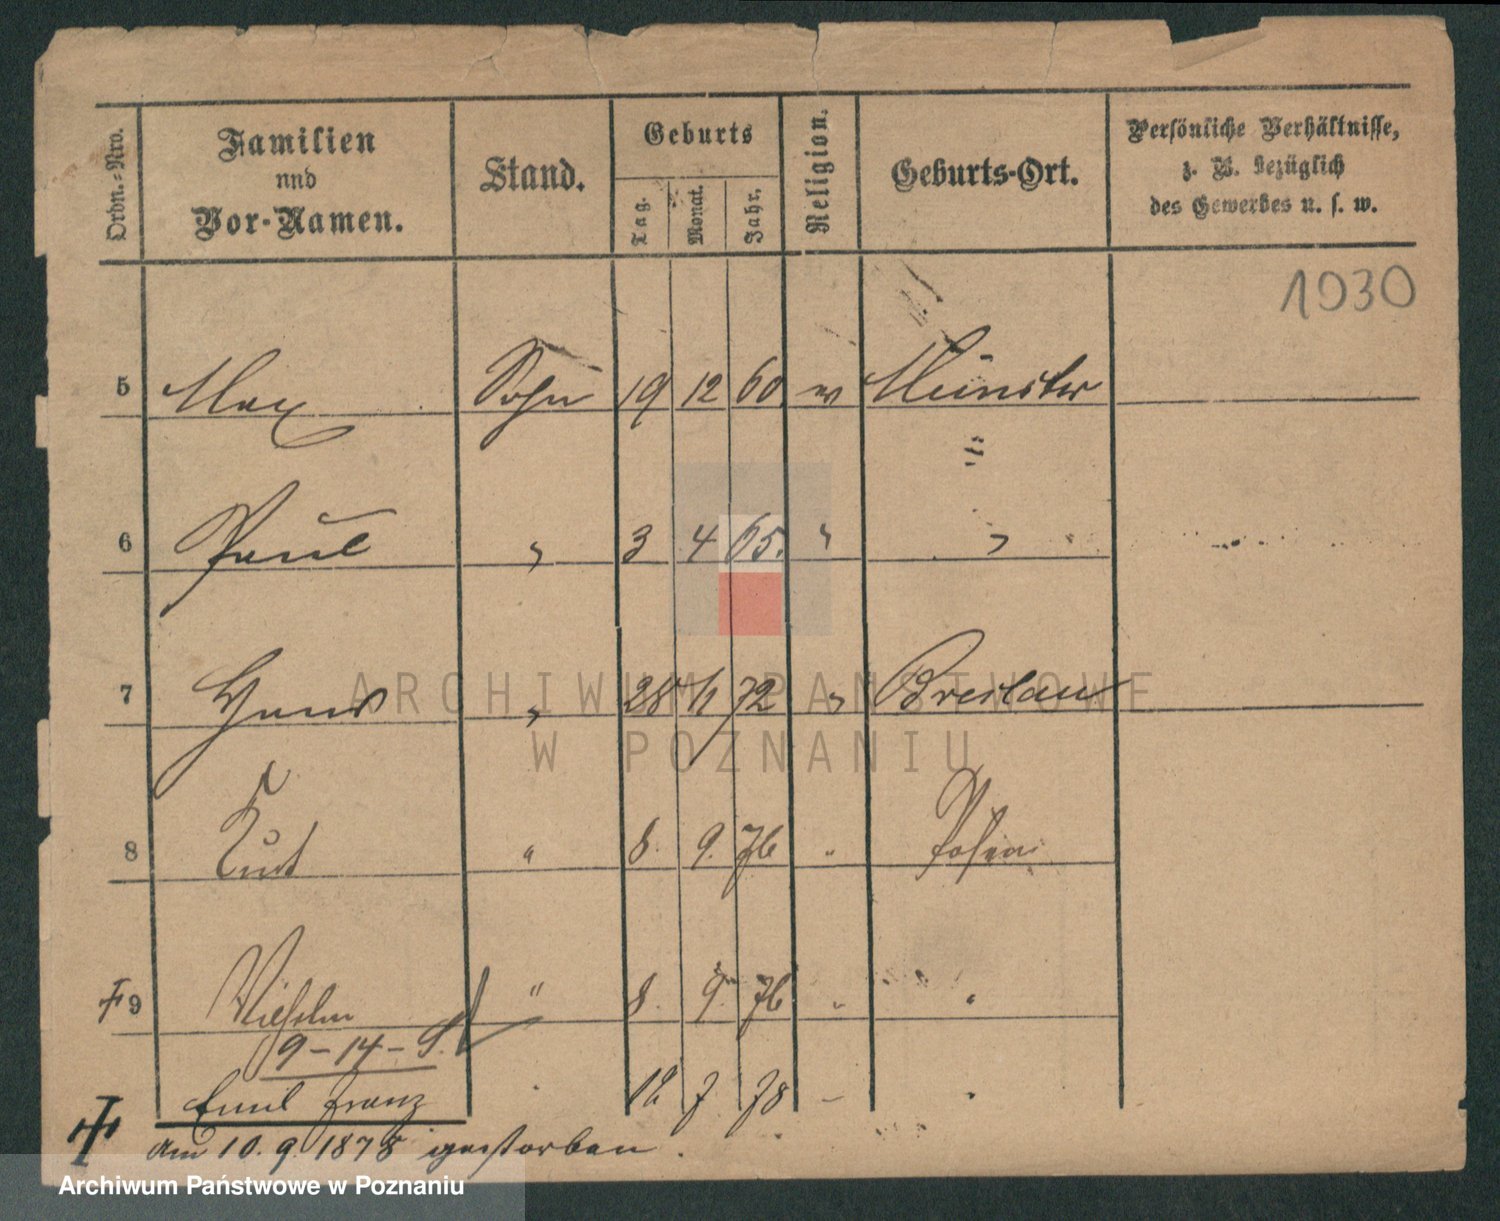 Ordn.-Nro. Familien und Vor-Namen. Stand. Geburts Tag. Monat. Jahr. Religion. Geburts-Ort. Persönliche Verhältnisse, z. B. bezüglich des Gewerbes u. s. w.
1030
5 Max Sohn 19 12 60 Münster
6 Paul " 3 4 65. " "
7 Hans " 28 11 72 " Breslau
8 Kurt " 8. 9. 76 " Posen
9 Wilhelm " 8. 9. 76 " "
9-14-
Emil Franz 19 7 78 " "
am 10. 9. 1878 gestorben.
ARCHIWUM PAŃSTWOWE
W POZNANIU
Archiwum Państwowe w Poznaniu